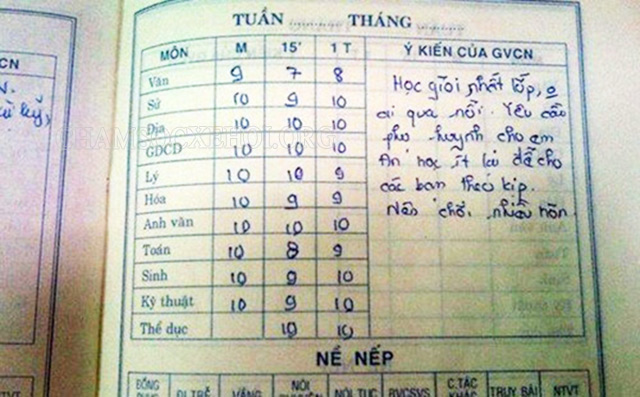 CN
TUẦN ........... THÁNG ...........
MÔN M 15' 1 T Ý KIẾN CỦA GVCN
Văn 9 7 8
Sử 10 9 10
Địa 10 10 10
GDCD 10 10 10
Lý 10 10 9
Hóa 10 9 9
Anh văn 10 10 10
Toán 10 8 9
Sinh 10 9 10
Kỹ thuật 10 9 10
Thể dục 10 10
Học giỏi nhất lớp, o
ai qua nổi. Yêu cầu
phụ huynh cho em
ăn học ít lại để cho
các bạn theo kịp.
Nên chơi nhiều hơn
CHAMSOCXEHOI.ORG
NỀ NẾP
ĐỒNG ĐI TRỄ VẮNG NÓI NÓI TỤC BVCSVS C.TÁC TRUY BÀI NTVT
KHÁC
NTVT